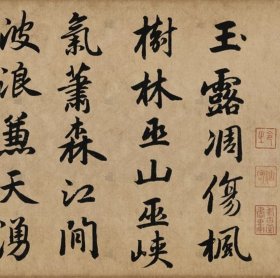 玉露凋傷楓
樹林巫山巫峡
氣蕭森江間
波浪蒹天湧